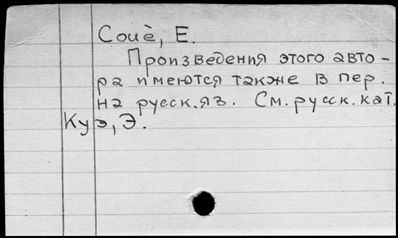 Couè, E.
Произведения этого авто-
ра имеются также в пер.
на русск.яз. См.русск.кат.
Куэ, Э.